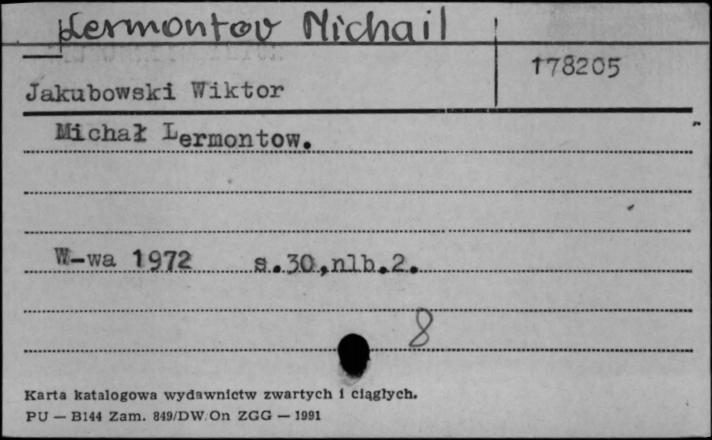 Lermontov Michail
178205
Jakubowski Wiktor
Michał Lermontow.
W-wa 1972 s.30,nlb.2.
8
Karta katalogowa wydawnictw zwartych i ciągłych.
PU — B144 Zam. 849/DW/On ZGG — 1991